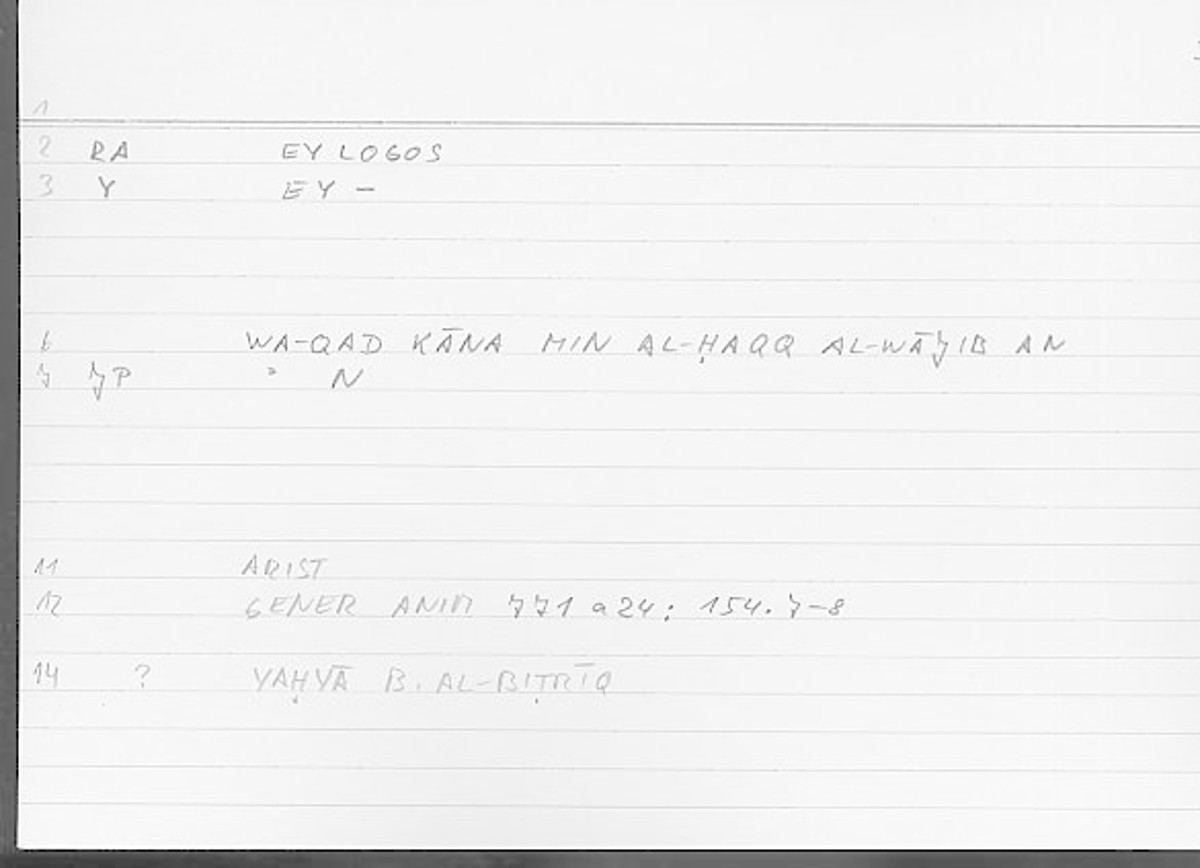 1
2 RA EY LOGOS
3 Y EY –
6 WA-QAD KĀNA MIN AL-ḤAQQ AL-WĀJIB AN
7 JP ' N
11 ARIST
12 GENER ANIM 771 a 24; 154.7-8
14 ? YAḤYĀ B. AL-BIṬRĪQ